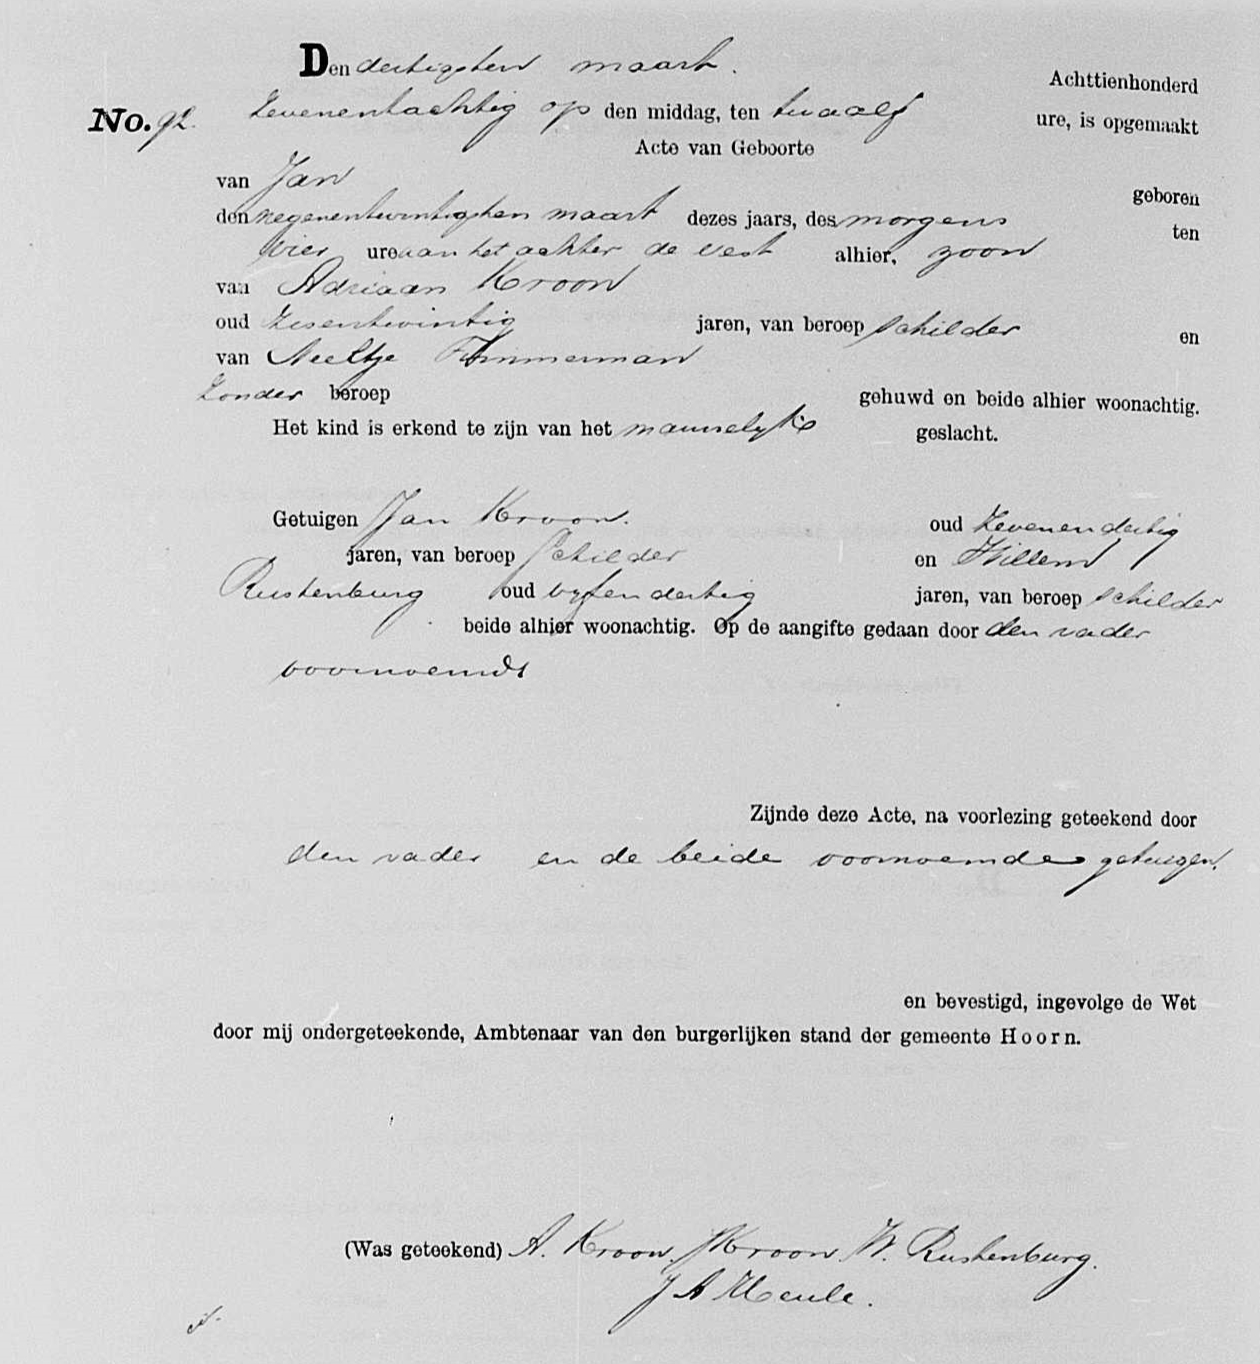 Den dertigsten maart. Achttienhonderd
No. 92. zevenentachtig op den middag, ten twaalf ure, is opgemaakt
Acte van Geboorte
van Jan geboren
den negenentwintigsten maart dezes jaars, des morgens ten
vier ure aan het achter de vest alhier, zoon
van Adriaan Kroon
oud zesentwintig jaren, van beroep schilder en
van Neeltje Timmerman
zonder beroep gehuwd en beide alhier woonachtig.
Het kind is erkend te zijn van het mannelijke geslacht.
Getuigen Jan Kroon. oud zevenendertig
jaren, van beroep schilder en Willem
Rustenburg oud vijfendertig jaren, van beroep schilder
beide alhier woonachtig. Op de aangifte gedaan door den vader
voornoemd
Zijnde deze Acte, na voorlezing geteekend door
den vader en de beide voornoemde getuigen.
en bevestigd, ingevolge de Wet
door mij ondergeteekende, Ambtenaar van den burgerlijken stand der gemeente Hoorn.
(Was geteekend) A. Kroon. J Kroon. W. Rustenburg.
J A